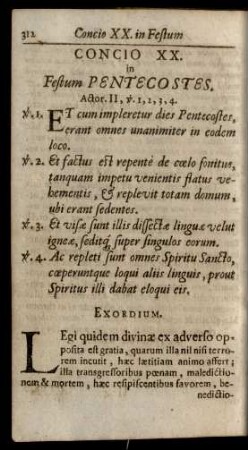 312 Concio XX. in Festum
CONCIO XX.
in
Festum PENTECOSTES.
Actor. II, ℣. 1, 2, 3, 4.
℣. 1. ET cum impleretur dies Pentecostes,
erant omnes unanimiter in eodem
loco.
℣. 2. Et factus est repentè de cœlo sonitus,
tanquam impetu venientis flatus ve-
hementis, & replevit totam domum,
ubi erant sedentes.
℣. 3. Et visæ sunt illis dissectæ linguæ velut
igneæ, seditq́; super singulos eorum.
℣. 4. Ac repleti sunt omnes Spiritu Sancto,
cœperuntque loqui aliis linguis, prout
Spiritus illi dabat eloqui eis.
EXORDIUM.
LEgi quidem divinæ ex adverso op-
posita est gratia, quarum illa nil nisi terro-
rem incutit, hæc lætitiam animo affert;
illa transgressoribus pœnam, maledictio-
nem & mortem, hæc resipiscentibus favorem, be-
nedictio-